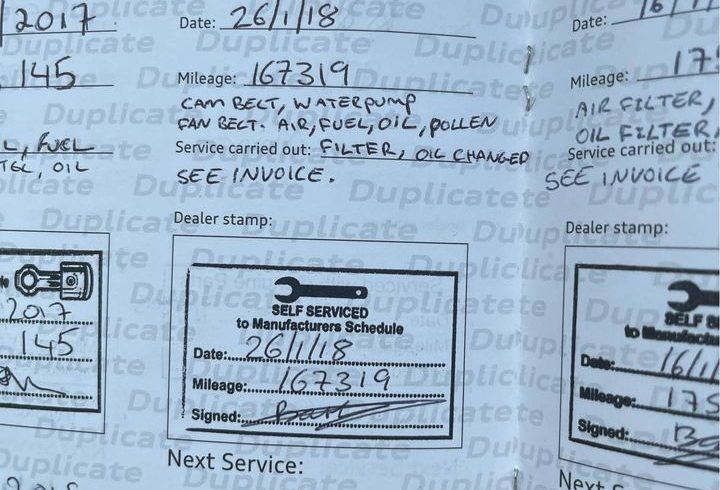 2017
145
L, FUEL
OIL
2017
145
Date: 26/1/18
Mileage: 167319
CAM BELT, WATERPUMP
FAN BELT. AIR, FUEL, OIL, POLLEN
Service carried out: FILTER, OIL CHANGED
SEE INVOICE.
Dealer stamp:
SELF SERVICED
to Manufacturers Schedule
Date: 26/1/18
Mileage: 167319
Signed:
Next Service:
Date: 16/1
Mileage: 17
AIR FILTER,
OIL FILTER,
Service carried out:
SEE INVOICE
Dealer stamp:
SELF S
to Manufactu
Date: 16/1/
Mileage: 175
Signed:
Next S
Duplicate